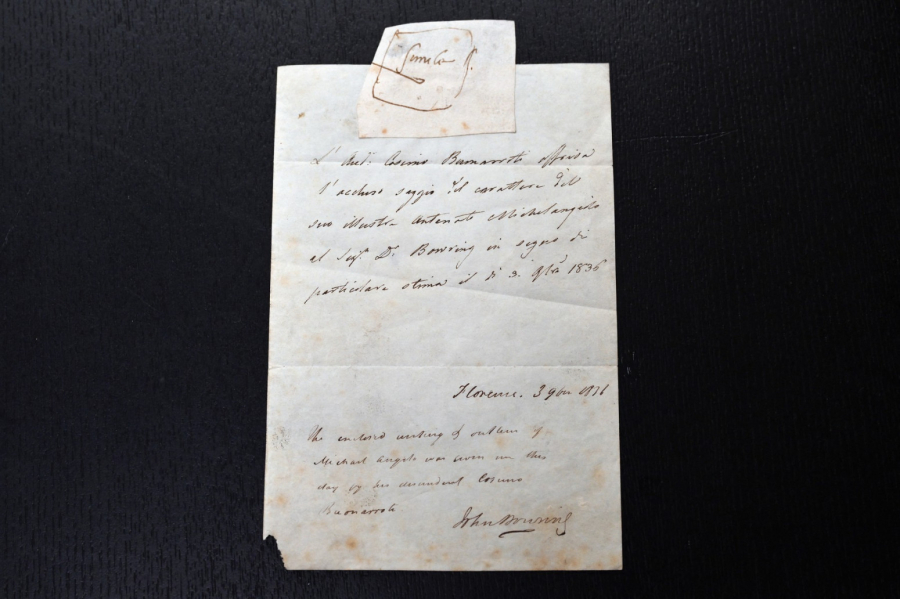 Simile
L' Aud. Cosimo Buonarroti offriva
l'accluso saggio del carattere del
suo illustre Antenato Michelangelo
al Sigr. Dr. Bowring in segno di
particolare stima il dì 3. 9bre 1836
Florence. 3 9bre 1836
The enclosed writing & outline of
Michael Angelo was given me this
day by his descendant Cosimo
Buonarroti
John Bowring